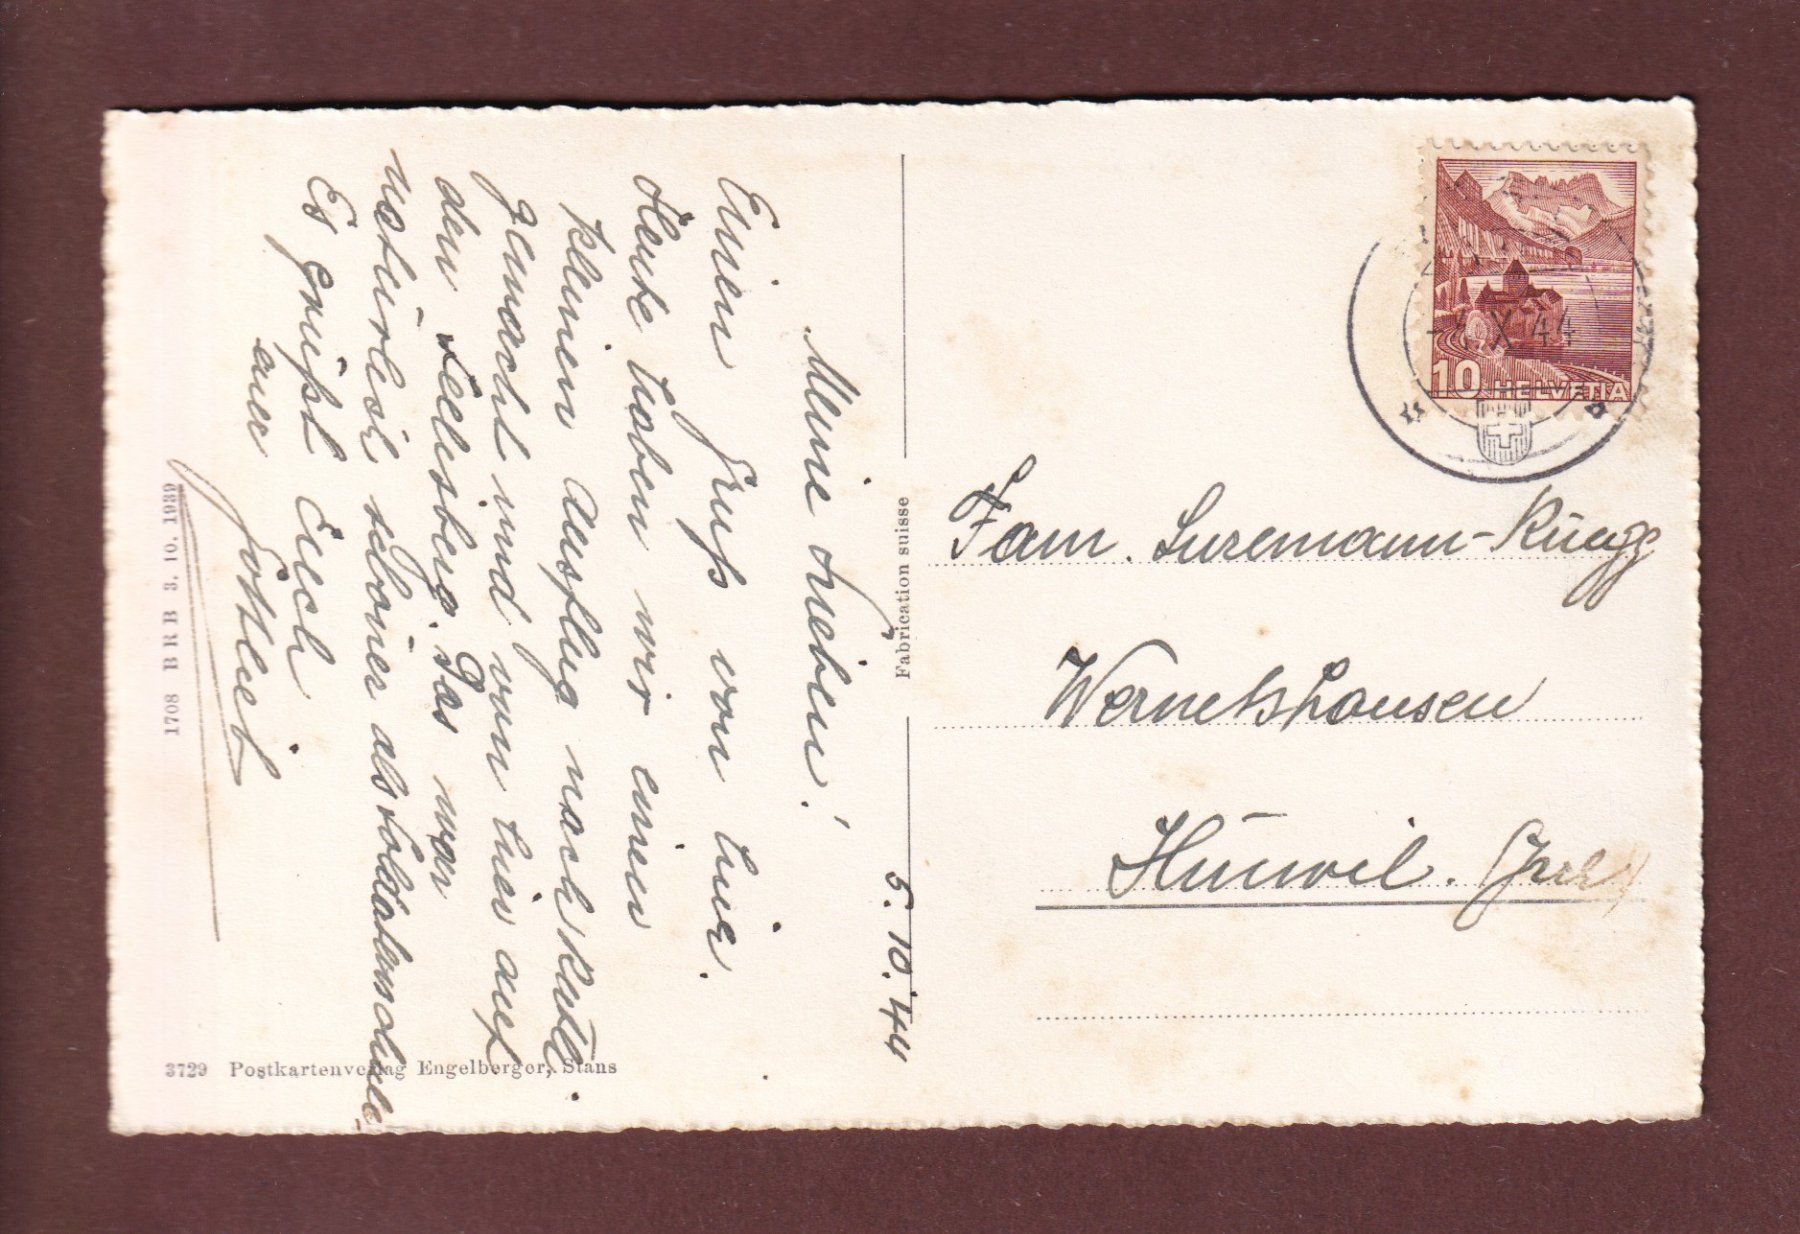 5.10.44
Meine Lieben!
Einen Gruss von hier.
Heute haben wir einen
kleinen Ausflug nach Rütli
gemacht und von hier auf
den Seelisberg. Das war
natürlich schöner als Soldatenschule
Es grüsst Euch
euer Gottlieb
Fam. -Rüegg
Wernetshausen
Hinwil.
10 HELVETIA
X.44
Fabrication suisse
1708 BRB 3.10.1939
3729 Postkartenverlag Engelberger, Stans